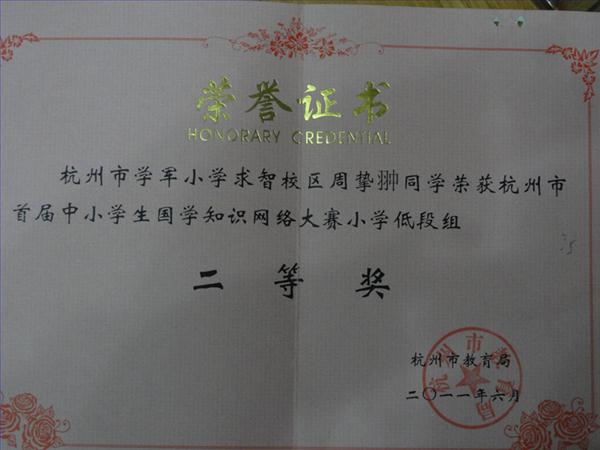 荣誉证书
HONORARY CREDENTIAL
杭州市学军小学求智校区周挚翀同学荣获杭州市
首届中小学生国学知识网络大赛小学低段组
二等奖
杭州市教育局
二〇一一年六月